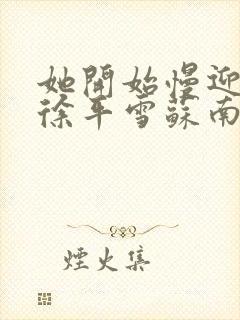 她開始慢迎
徐平雪蘇南
煙火集